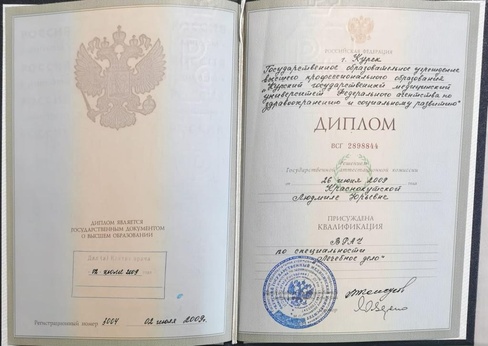 ДИПЛОМ ЯВЛЯЕТСЯ
ГОСУДАРСТВЕННЫМ ДОКУМЕНТОМ
О ВЫСШЕМ ОБРАЗОВАНИИ
12 июля 2009
Регистрационный номер 1004 02 июля 2009г.
РОССИЙСКАЯ ФЕДЕРАЦИЯ
г. Курск
Государственное образовательное учреждение
высшего профессионального образования
"Курский государственный медицинский
университет Федерального агентства по
здравоохранению и социальному развитию"
ДИПЛОМ
ВСГ 2898844
Решением
Государственной аттестационной комиссии
от 26 июня 2009 года
Краснокутской
Людмиле Юрьевне
ПРИСУЖДЕНА
КВАЛИФИКАЦИЯ
ВРАЧ
по специальности
"Лечебное дело"